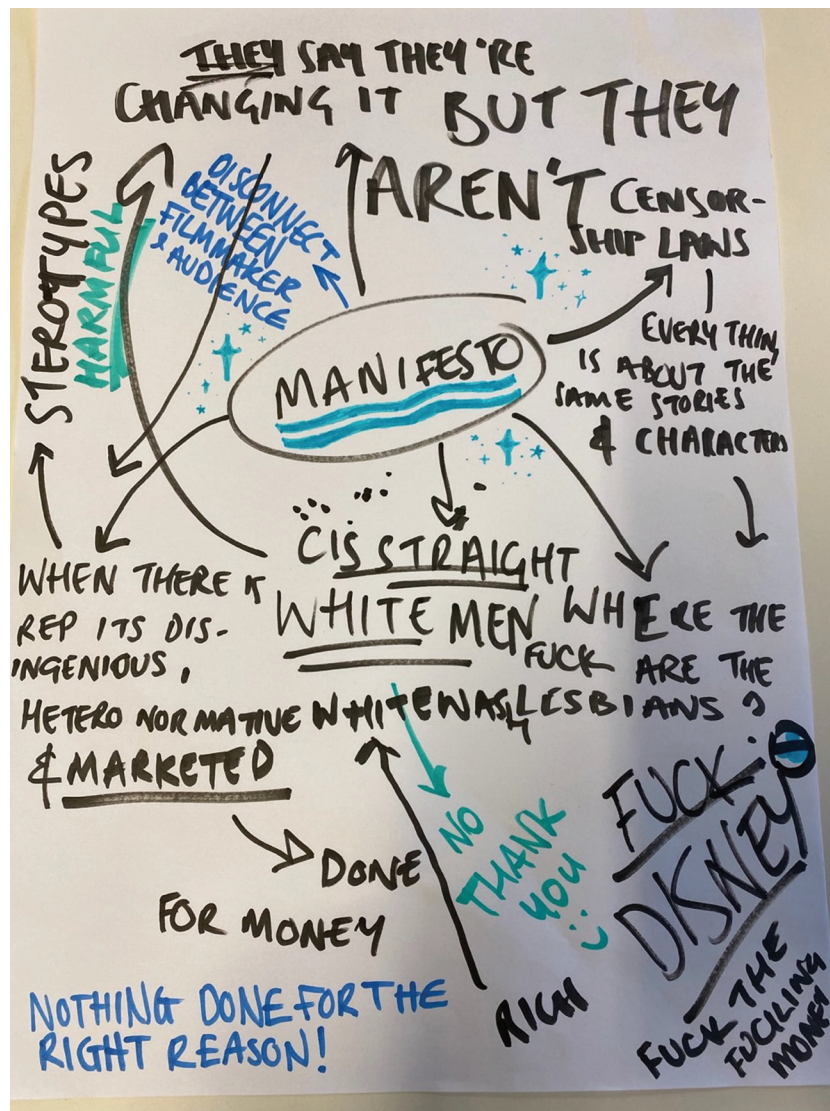 THEY SAY THEY'RE
CHANGING IT BUT THEY
AREN'T
STEROTYPES
HARMFUL
DISCONNECT
BETWEEN
FILMMAKER
& AUDIENCE
CENSOR-
SHIP LAWS
EVERYTHIN
IS ABOUT THE
SAME STORIES
& CHARACTERS
MANIFESTO
CIS STRAIGHT
WHITE MEN
WHEN THERE IS
REP ITS DIS-
INGENIOUS,
HETERO NORMATIVE WHITEWASH
& MARKETED
WHERE THE
FUCK ARE THE
LESBIANS?
DONE
FOR MONEY
NO
THANK
YOU :)
RICH
FUCK
DISNEY
FUCK THE
FUCKING
MONEY
NOTHING DONE FOR THE
RIGHT REASON!